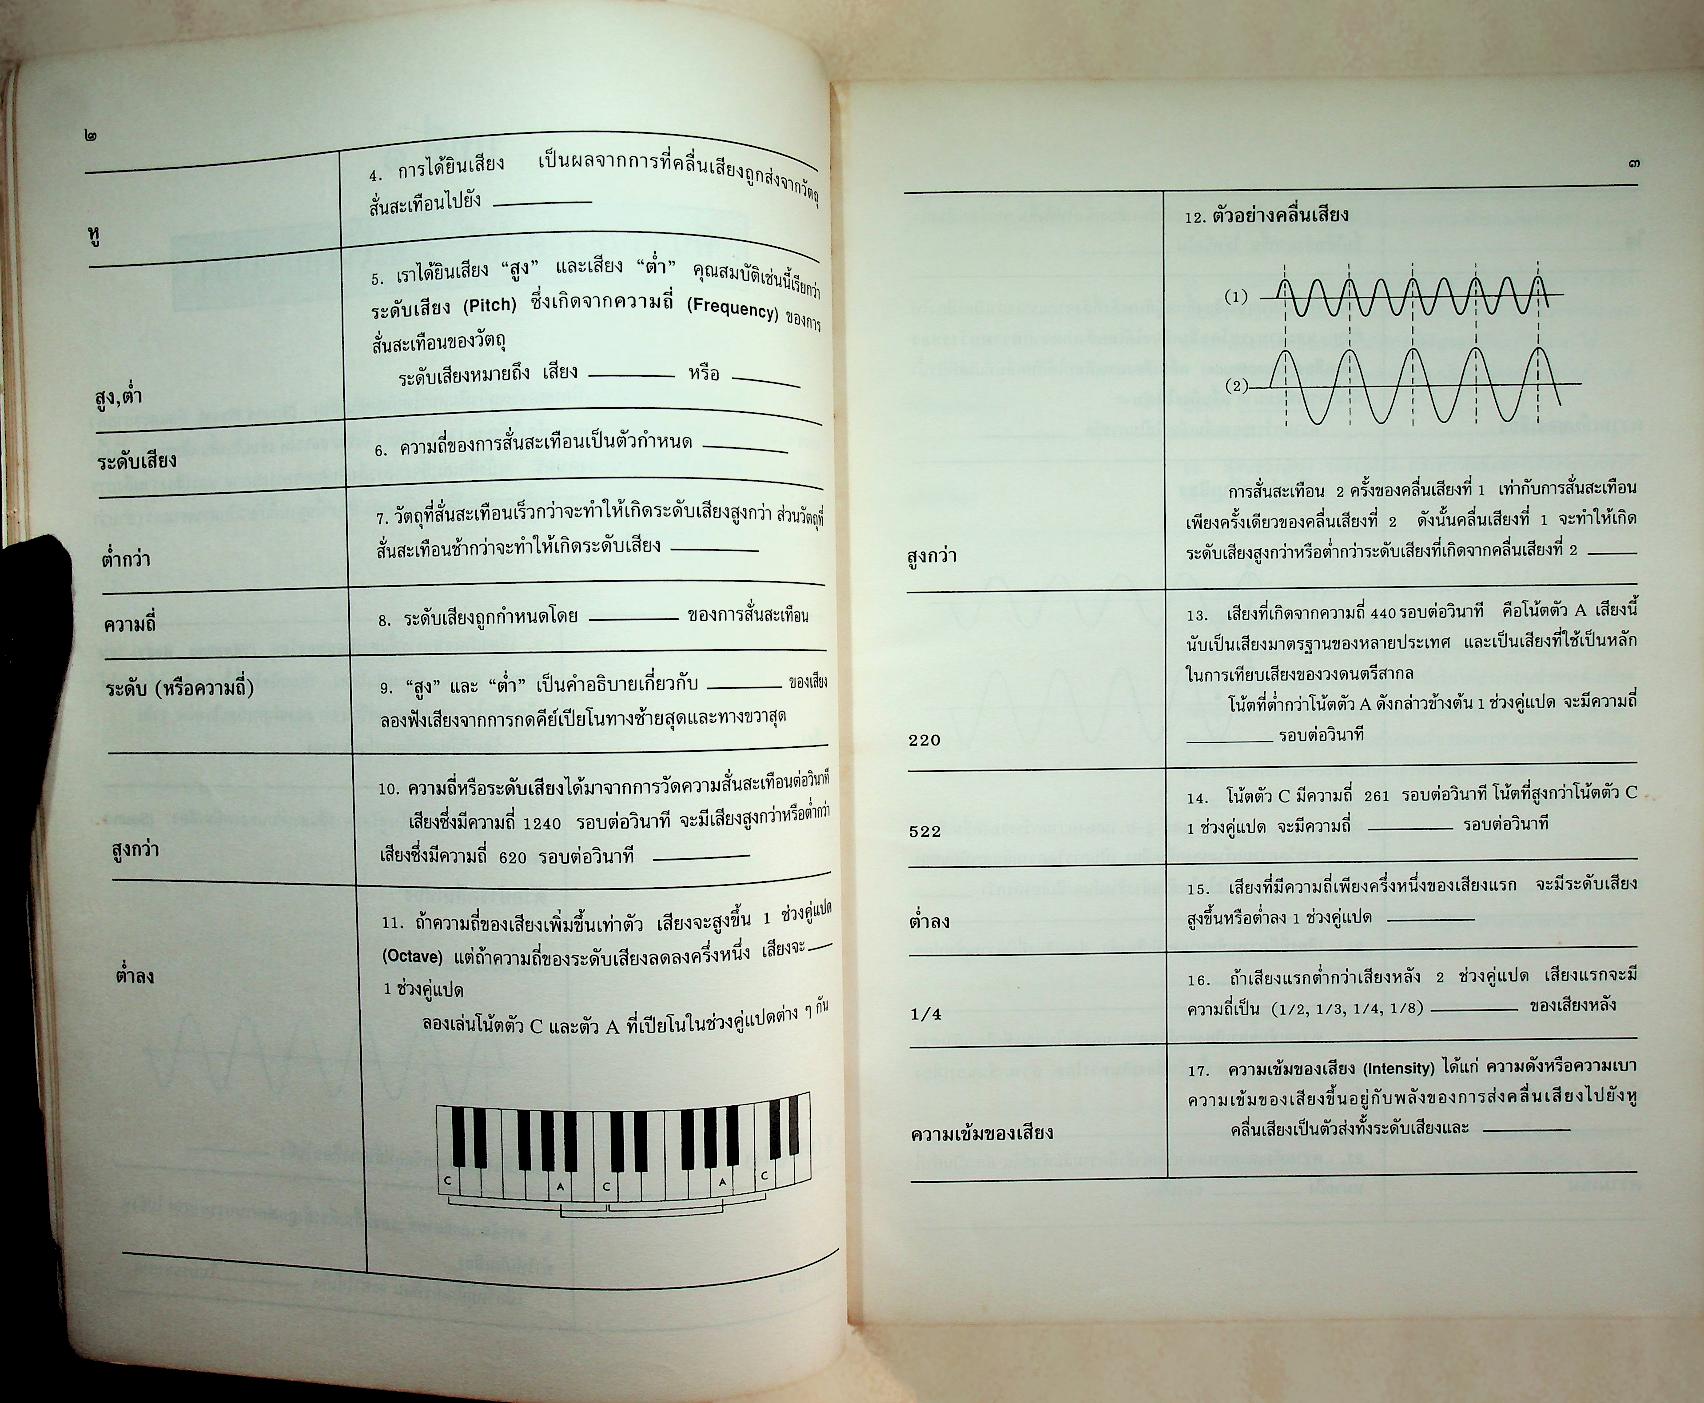 ๒
หู
4. การได้ยินเสียง เป็นผลจากการที่คลื่นเสียงถูกส่งจากวัตถุ
สั่นสะเทือนไปยัง ________
5. เราได้ยินเสียง “สูง” และเสียง “ต่ำ” คุณสมบัติเช่นนี้เรียกว่า
ระดับเสียง (Pitch) ซึ่งเกิดจากความถี่ (Frequency) ของการ
สั่นสะเทือนของวัตถุ
ระดับเสียงหมายถึง เสียง ________ หรือ ________
สูง,ต่ำ
ระดับเสียง
6. ความถี่ของการสั่นสะเทือนเป็นตัวกำหนด ________
7. วัตถุที่สั่นสะเทือนเร็วกว่าจะทำให้เกิดระดับเสียงสูงกว่า ส่วนวัตถุที่
สั่นสะเทือนช้ากว่าจะทำให้เกิดระดับเสียง ________
ต่ำกว่า
ความถี่
8. ระดับเสียงถูกกำหนดโดย ________ ของการสั่นสะเทือน
ระดับ (หรือความถี่)
9. “สูง” และ “ต่ำ” เป็นคำอธิบายเกี่ยวกับ ________ ของเสียง
ลองฟังเสียงจากการกดคีย์เปียโนทางซ้ายสุดและทางขวาสุด
10. ความถี่หรือระดับเสียงได้มาจากการวัดความสั่นสะเทือนต่อวินาที
เสียงซึ่งมีความถี่ 1240 รอบต่อวินาที จะมีเสียงสูงกว่าหรือต่ำกว่า
เสียงซึ่งมีความถี่ 620 รอบต่อวินาที ________
สูงกว่า
11. ถ้าความถี่ของเสียงเพิ่มขึ้นเท่าตัว เสียงจะสูงขึ้น 1 ช่วงคู่แปด
(Octave) แต่ถ้าความถี่ของระดับเสียงลดลงครึ่งหนึ่ง เสียงจะ ____
1 ช่วงคู่แปด
ต่ำลง
ลองเล่นโน้ตตัว C และตัว A ที่เปียโนในช่วงคู่แปดต่าง ๆ กัน
C A C A C
๓
12. ตัวอย่างคลื่นเสียง
(1)
(2)
การสั่นสะเทือน 2 ครั้งของคลื่นเสียงที่ 1 เท่ากับการสั่นสะเทือน
เพียงครั้งเดียวของคลื่นเสียงที่ 2 ดังนั้นคลื่นเสียงที่ 1 จะทำให้เกิด
ระดับเสียงสูงกว่าหรือต่ำกว่าระดับเสียงที่เกิดจากคลื่นเสียงที่ 2 ____
สูงกว่า
13. เสียงที่เกิดจากความถี่ 440 รอบต่อวินาที คือโน้ตตัว A เสียงนี้
นับเป็นเสียงมาตรฐานของหลายประเทศ และเป็นเสียงที่ใช้เป็นหลัก
ในการเทียบเสียงของวงดนตรีสากล
โน้ตที่ต่ำกว่าโน้ตตัว A ดังกล่าวข้างต้น 1 ช่วงคู่แปด จะมีความถี่
________ รอบต่อวินาที
220
14. โน้ตตัว C มีความถี่ 261 รอบต่อวินาที โน้ตที่สูงกว่าโน้ตตัว C
1 ช่วงคู่แปด จะมีความถี่ ________ รอบต่อวินาที
522
15. เสียงที่มีความถี่เพียงครึ่งหนึ่งของเสียงแรก จะมีระดับเสียง
สูงขึ้นหรือต่ำลง 1 ช่วงคู่แปด ________
ต่ำลง
16. ถ้าเสียงแรกต่ำกว่าเสียงหลัง 2 ช่วงคู่แปด เสียงแรกจะมี
ความถี่เป็น (1/2, 1/3, 1/4, 1/8) ________ ของเสียงหลัง
1/4
17. ความเข้มของเสียง (Intensity) ได้แก่ ความดังหรือความเบา
ความเข้มของเสียงขึ้นอยู่กับพลังของการส่งคลื่นเสียงไปยังหู
คลื่นเสียงเป็นตัวส่งทั้งระดับเสียงและ ________
ความเข้มของเสียง